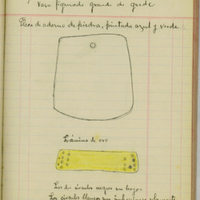 Vaso figurado grande de grede
Pieza de adorno de piedra, pintada azul y verde.
Lámina de oro
Los dos círculos negros son hoyos.
Los círculos blancos son